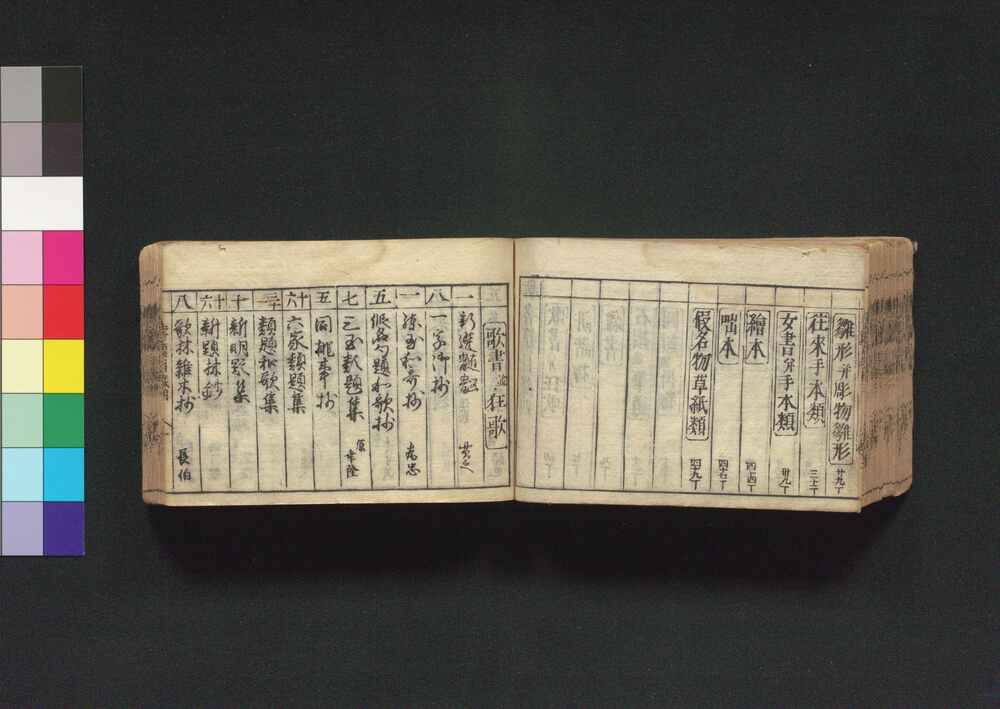 雛形并彫物雛形 廿九丁
往来手本類 三十一丁
女書并手本類 卅九丁
繪本 四十四丁
咄本 四十七丁
假名物草紙類 四十九丁
歌書并狂歌
一
八 一字御抄
一 為忠
五 假名句題和歌抄
七 三玉類題集
五 同桃事抄
十六 六家類題集
三十 類題和歌集
十 新明題集
十六 新題林鈔
八 歌林雜木抄 長伯